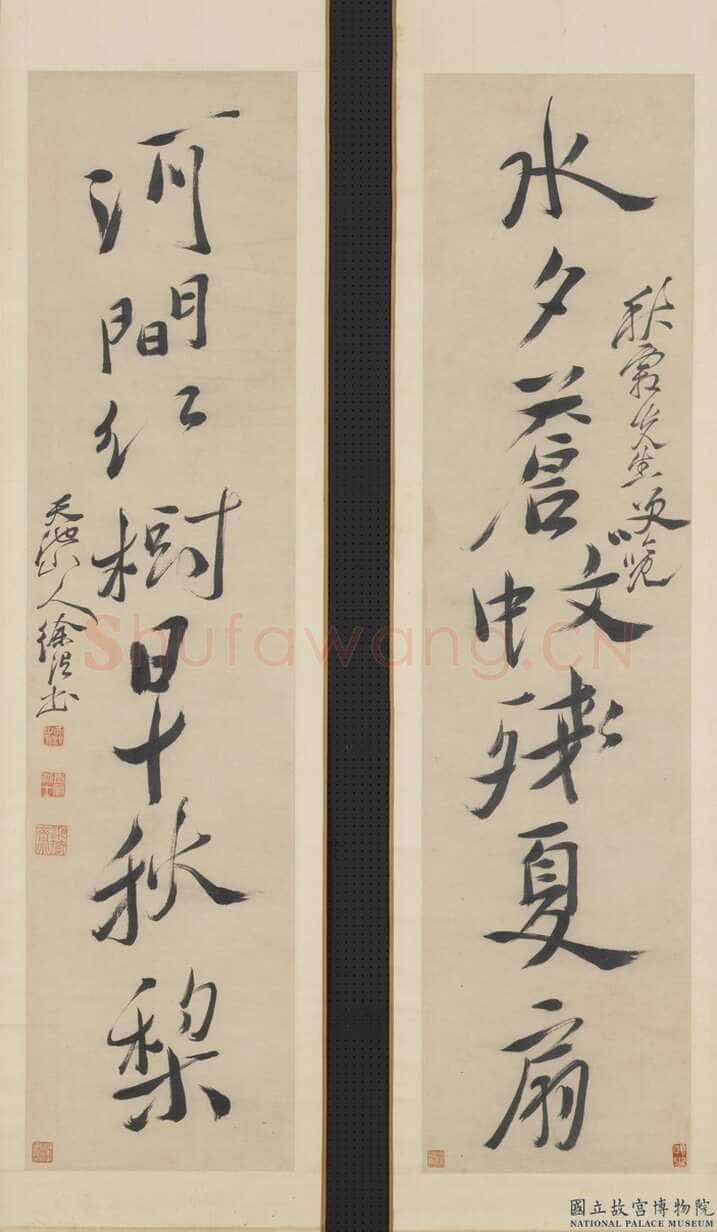 水夕蒼蚊殘夏扇
先生
河間紅樹早秋梨
天池山人徐渭書
Shufawang.CN
國立故宮博物院
NATIONAL PALACE MUSEUM